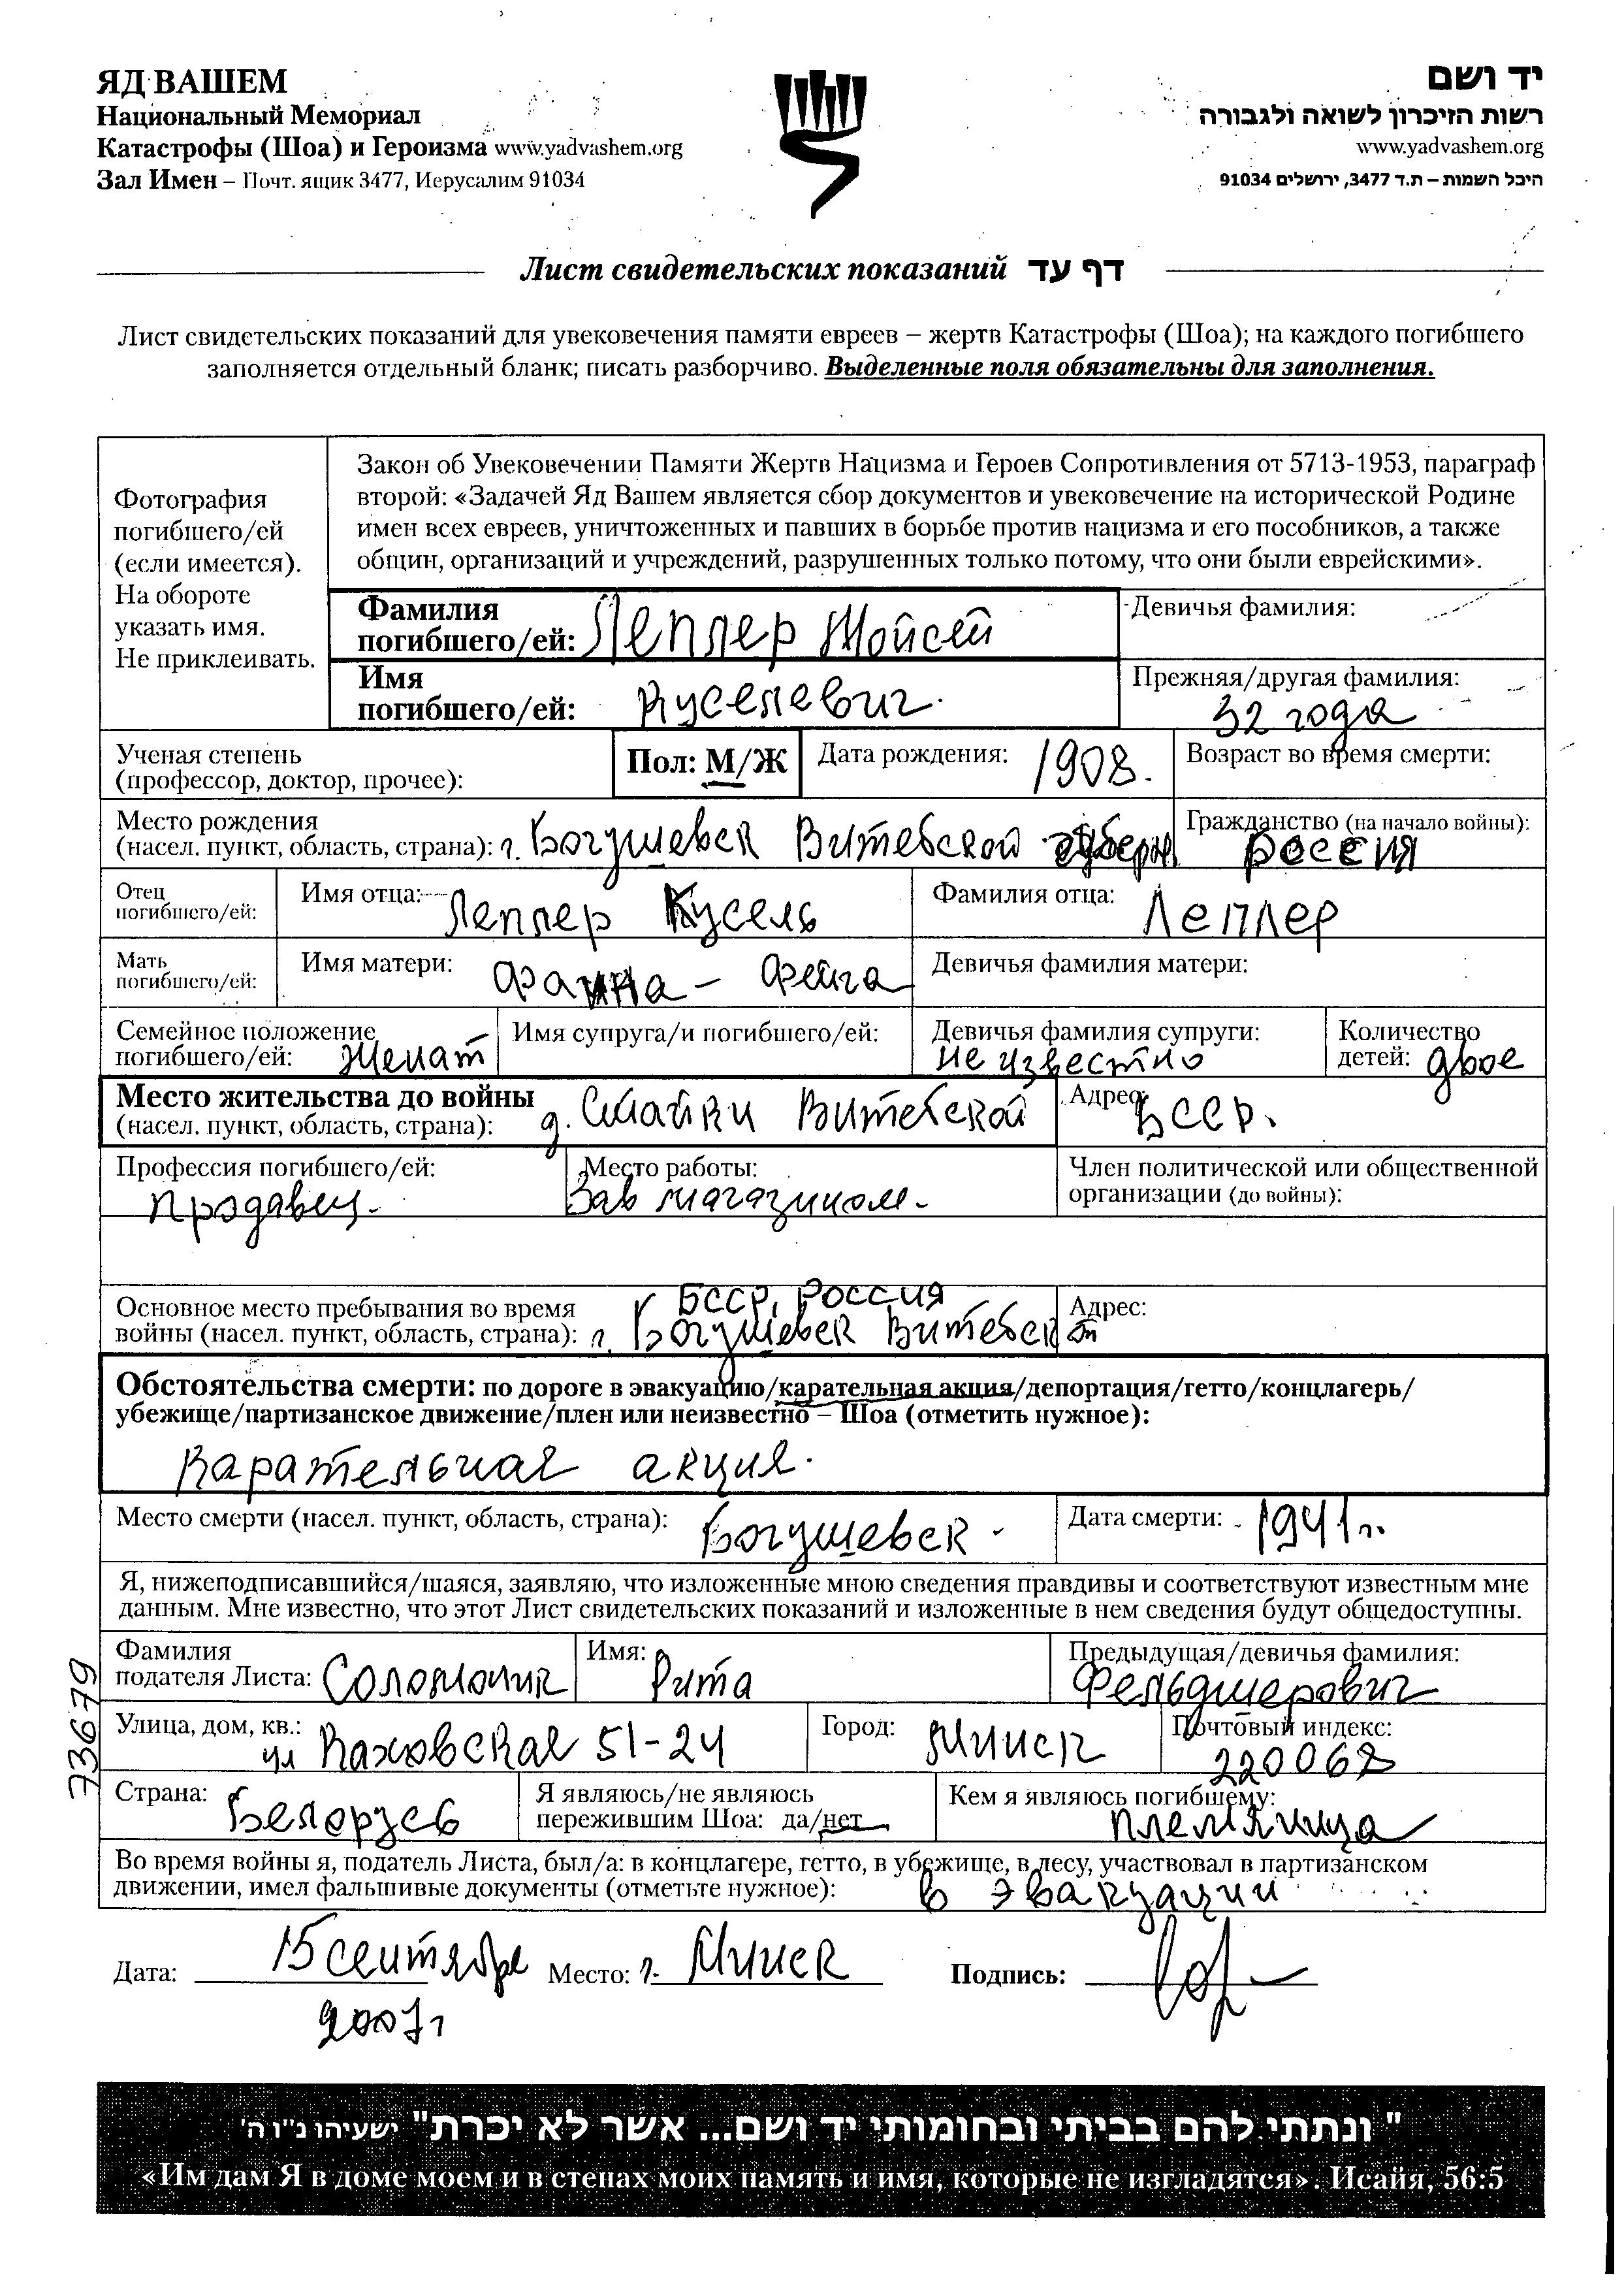 ЯД ВАШЕМ
Национальный Мемориал
Катастрофы (Шоа) и Героизма www.yadvashem.org
Зал Имен – Почт. ящик 3477, Иерусалим 91034
יד ושם
רשות הזיכרון לשואה ולגבורה
www.yadvashem.org
היכל השמות – ת.ד 3477, ירושלים 91034
Лист свидетельских показаний דף עד
Лист свидетельских показаний для увековечения памяти евреев – жертв Катастрофы (Шоа); на каждого погибшего
заполняется отдельный бланк; писать разборчиво. Выделенные поля обязательны для заполнения.
Фотография
погибшего/ей
(если имеется).
На обороте
указать имя.
Не приклеивать.
Закон об Увековечении Памяти Жертв Нацизма и Героев Сопротивления от 5713-1953, параграф
второй: «Задачей Яд Вашем является сбор документов и увековечение на исторической Родине
имен всех евреев, уничтоженных и павших в борьбе против нацизма и его пособников, а также
общин, организаций и учреждений, разрушенных только потому, что они были еврейскими».
Фамилия
погибшего/ей: Леплер Мойсей
Девичья фамилия:
Имя
погибшего/ей: Куселевич.
Прежняя/другая фамилия:
32 года
Ученая степень
(профессор, доктор, прочее):
Пол: М/Ж
Дата рождения: 1908.
Возраст во время смерти:
Место рождения
(насел. пункт, область, страна): г. Богушевск Витебской губерн
Гражданство (на начало войны):
Россия
Отец
погибшего/ей:
Имя отца: Леплер Кусель
Фамилия отца: Леплер
Мать
погибшего/ей:
Имя матери: Фаина – Фейга
Девичья фамилия матери:
Семейное положение
погибшего/ей: Женат
Имя супруга/и погибшего/ей:
Девичья фамилия супруги:
не известно
Количество
детей: двое
Место жительства до войны
(насел. пункт, область, страна): д. Стайки Витебской
Адрес: БССР.
Профессия погибшего/ей:
продавец.
Место работы:
Зав магазином.
Член политической или общественной
организации (до войны):
БССР, Россия
Основное место пребывания во время
войны (насел. пункт, область, страна): г. Богушевск Витебск
Адрес:
Обстоятельства смерти: по дороге в эвакуацию/карательная акция/депортация/гетто/концлагерь/
убежище/партизанское движение/плен или неизвестно – Шоа (отметить нужное):
Карательная акция.
Место смерти (насел. пункт, область, страна): Богушевск -
Дата смерти: 1941 г.
Я, нижеподписавшийся/шаяся, заявляю, что изложенные мною сведения правдивы и соответствуют известным мне
данным. Мне известно, что этот Лист свидетельских показаний и изложенные в нем сведения будут общедоступны.
Фамилия
подателя Листа: Соломоник
Имя: Рита
Предыдущая/девичья фамилия:
Фельдшерович
73679
Улица, дом, кв.: ул Каховская 51-24
Город: Минск
Почтовый индекс:
220068
Страна: Беларусь
Я являюсь/не являюсь
пережившим Шоа: да/нет
Кем я являюсь погибшему:
племяница
Во время войны я, податель Листа, был/а: в концлагере, гетто, в убежище, в лесу, участвовал в партизанском
движении, имел фальшивые документы (отметьте нужное): в эвакуации
Дата: 15 сентября Место: г. Минск Подпись:
2007г
" ונתתי להם בביתי ובחומותי יד ושם... אשר לא יכרת" ישעיהו נ"ו ה'
«Им дам Я в доме моем и в стенах моих память и имя, которые не изгладятся». Исайя, 56:5